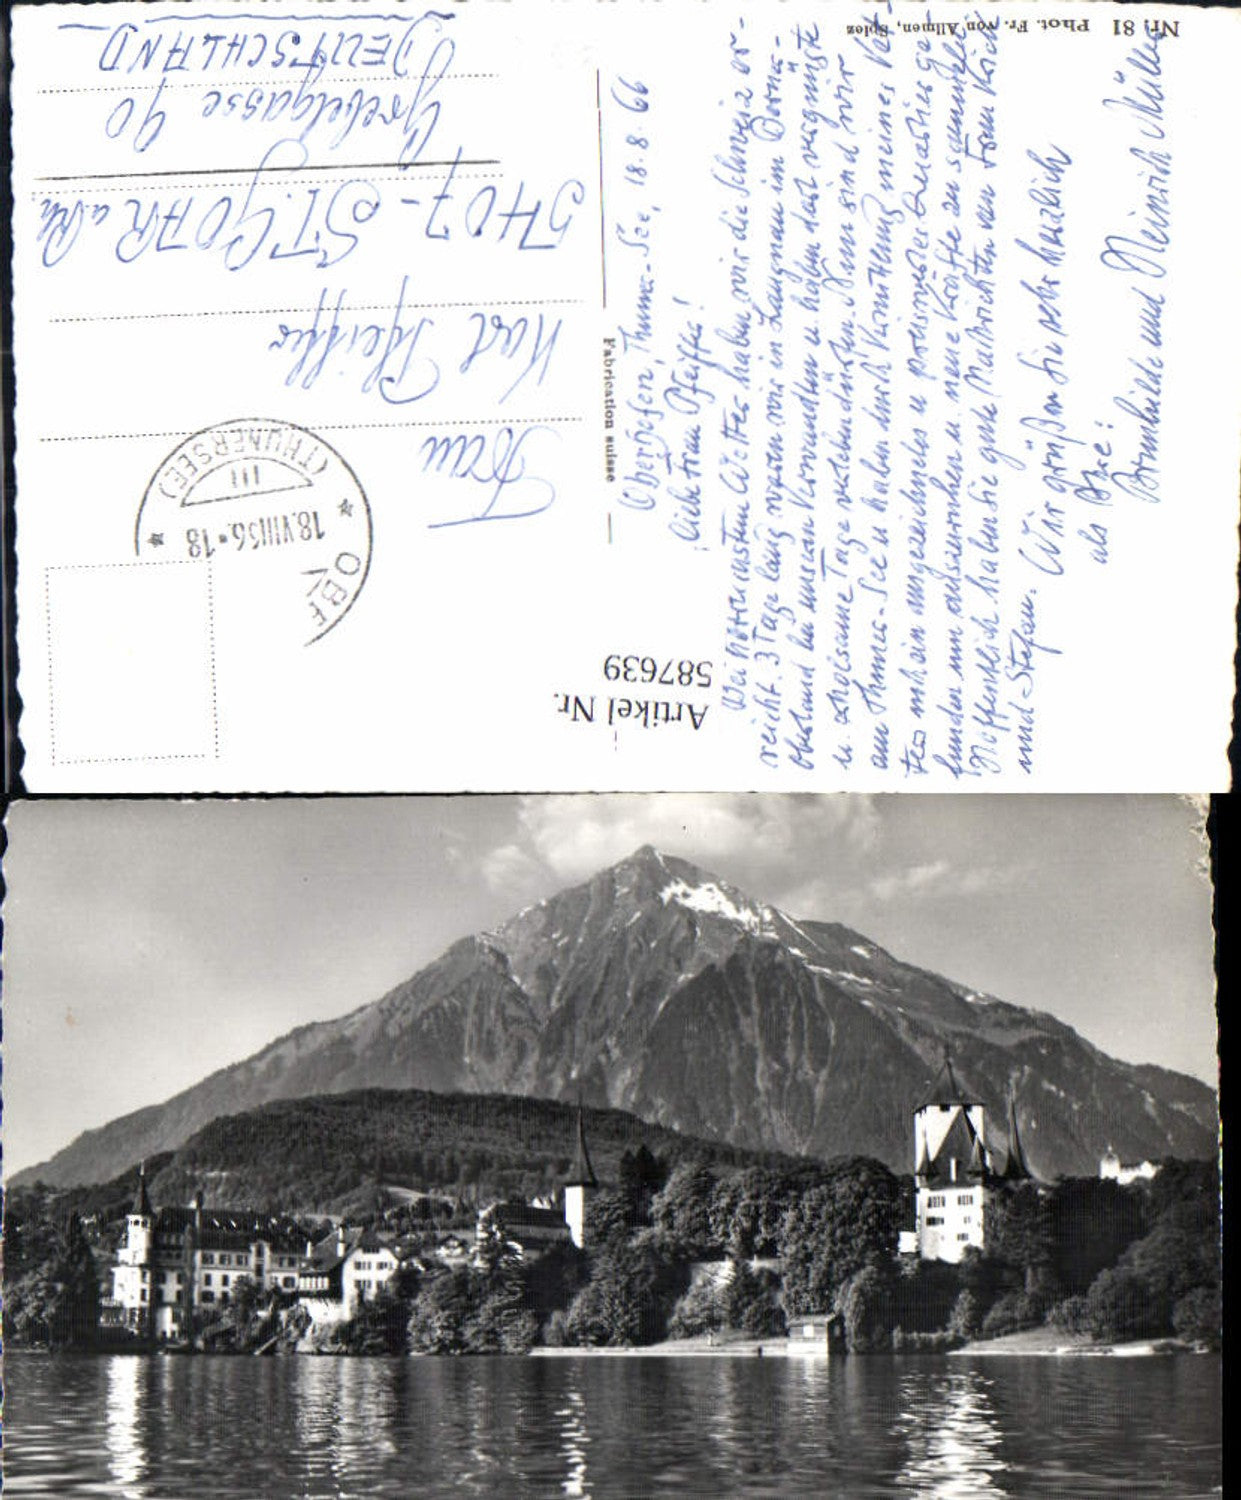 Nr. 81 Phot. Fr. von Allmen, Spiez
Fabrication suisse
Oberhofen, Thuner-See, 18.8.66
Liebe Frau Pfeiffer!
Bei schönstem Wetter haben wir die Schweiz er-
reicht. 3 Tage lang waren wir in Langnau im Berner-
oberland bei unseren Verwandten u. haben dort vergnügte
u. erholsame Tage verleben dürfen. Nun sind wir
am Thuner-See u. haben durch Vermittlung meines Vet-
ters ein ausgezeichnetes u. preiswertes Quartier ge-
funden um auszuruhen u. neue Kräfte zu sammeln.
Hoffentlich haben Sie gute Nachrichten von Frau
und Stefan. Wir grüßen Sie sehr herzlich
als Ihre:
Brunhilde und Heinrich Müller
Frau
Karl Pfeiffer
5407-ST. GOAR a. Rh.
Grebelgasse 90
DEUTSCHLAND
OBE
(THUNERSEE)
18.VIII 66-18
Artikel Nr.
587639